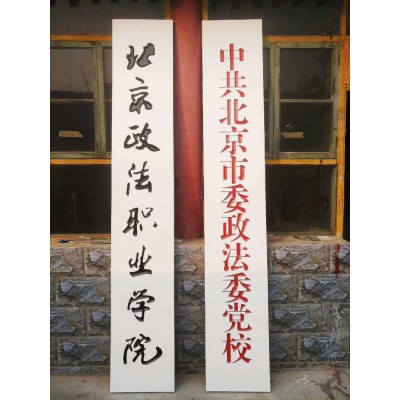 北京政法职业学院
中共北京市委政法委党校